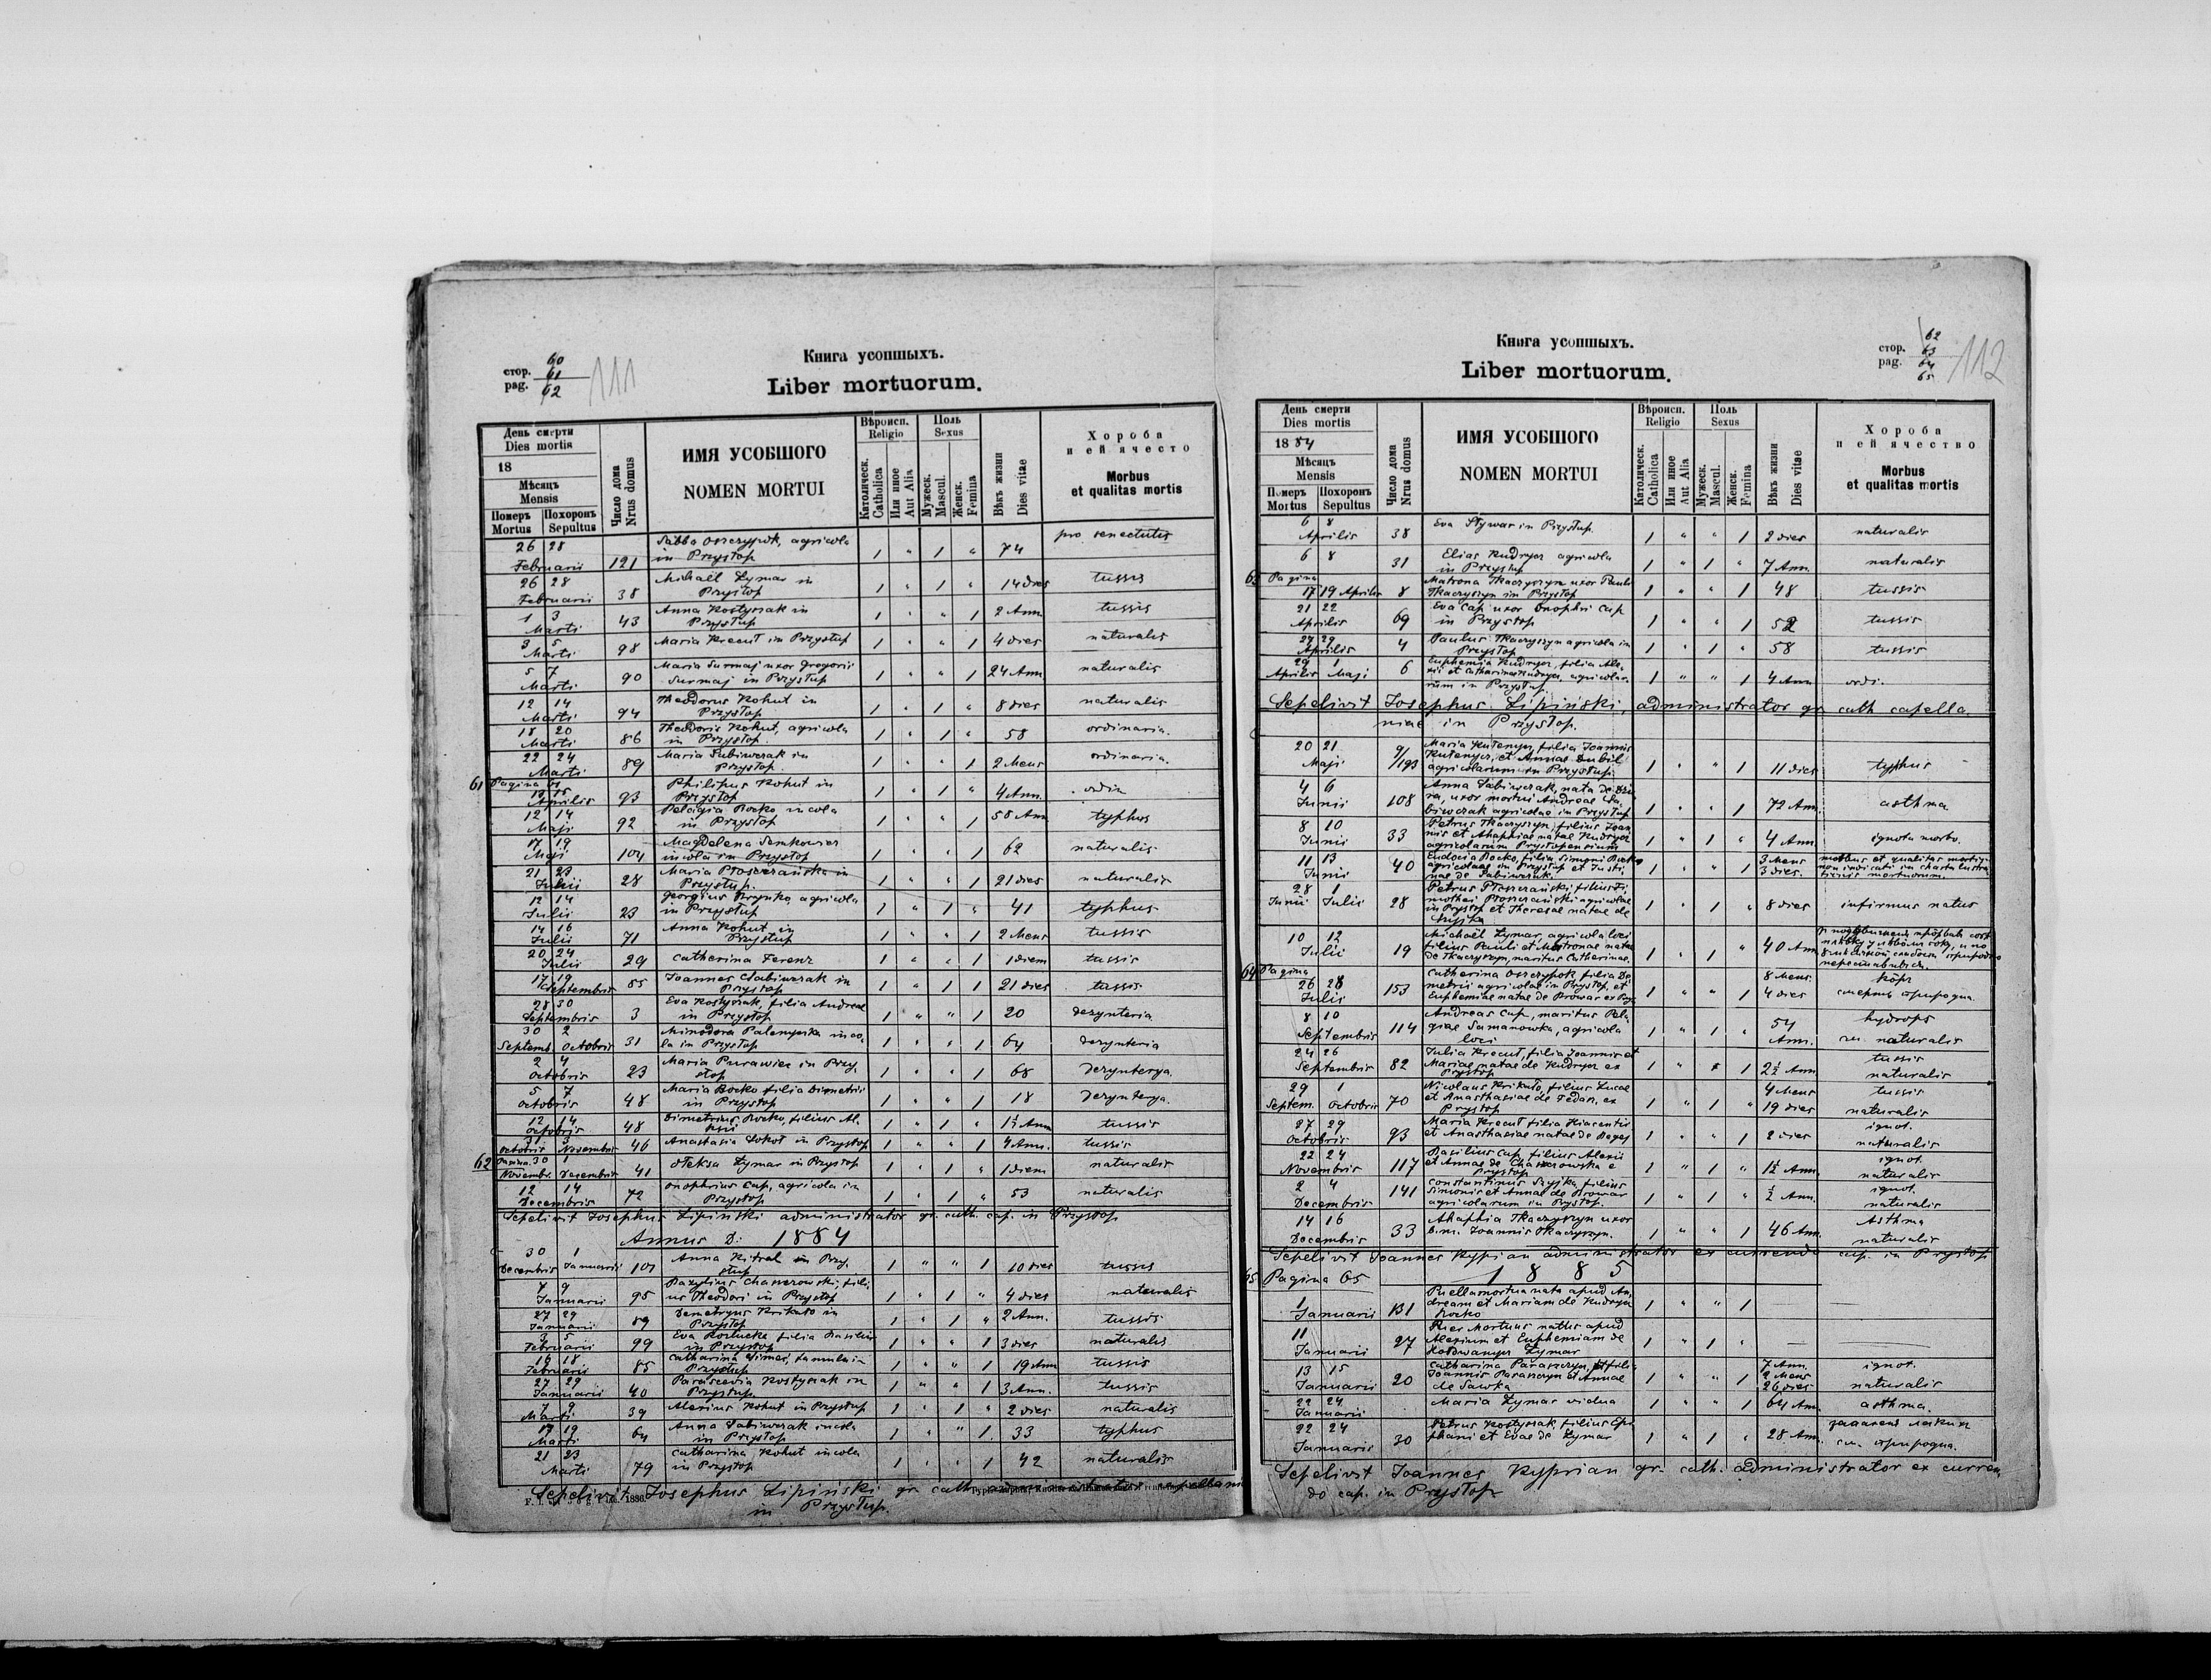 Книга усопшыхъ.
Liber mortuorum.
стор. 60
pag. 61
62
111
День смерти
Dies mortis
18
Мѣсяцъ
Mensis
Померъ Похоронъ
Mortus Sepultus
Число дома
Nrus domus
ИМЯ УСОБШОГО
NOMEN MORTUI
Вѣроисп.
Religio
Католическ.
Catholica
Или иное
Aut Alia
Поль
Sexus
Мужеск.
Mascul.
Женск.
Femina
Вѣкъ жизни
Dies vitae
Хороба
и ей ячесто
Morbus
et qualitas mortis
26 28 Februarii 121 Sabba Oszczypok, agricola
in Przystop 1 " 1 " 74 pro senectutis
26 28 Februarii 38 Michaël Zymar in
Przystop 1 " 1 " 14 dies tussis
1 3 Marti 43 Anna Kostyszak in
Przystup 1 " " 1 2 Ann. tussis
3 5 Marti 98 Maria Krecut in Przystup 1 " " 1 4 dies naturalis
5 7 Marti 90 Maria Surmaj uxor Gregorii
Surmaj in Przystup 1 " " 1 24 Ann. naturalis
12 14 Marti 94 Theodorus Kohut in
Przystop 1 " 1 " 8 dies naturalis
18 20 Marti 86 Theodoris Kohut, agricola
in Przystop. 1 " 1 " 58 ordinaria.
22 24 Marti 89 Maria Sabiwczak in
Przystop 1 " " 1 2 Mens ordinaria.
61 Pagina 61
Aprilis 93 Philipus Kohut in
Przystop 1 " " 1 4 Ann. ordin
12 14 Maji 92 Pelagia Bocko incola
in Przystop 1 " " 1 58 Ann typhus
17 19 Maji 104 Magdelena Senkowicz
incola in Przystop 1 " " 1 62 naturalis
21 23 Julii 28 Maria Ptoszczańska in
Przystup. 1 " " 1 21 dies naturalis
12 14 Julii 23 Georgius Hrynko, agricola
in Przystup 1 " 1 " 41 typhus
14 16 Julii 71 Anna Kohut in
Przystup 1 " " 1 2 Mens tussis
20 24 Julii 29 Catherina Ferenz 1 " " 1 1 diem tussis
17 19 Septembris 85 Joannes Sabiwczak in
Przystop 1 " 1 1 21 dies tussis
28 30 Septembris 3 Eva Kostyszak, filia Andreae
in Przystop 1 " " 1 20 dezynteria
30 2 Septemb. Octobris 31 Minodora Palenyczka inco-
la in Przystup 1 " " 1 64 dezynteria
2 4 Octobris 23 Maria Purawiec in Przy
stop 1 " " 1 68 dezynterya.
5 7 Octobris 48 Maria Bocko filia Dimetrii
in Przystop 1 " " 1 18 dezynterya.
12 14 Octobris 48 Dimetrius Bocko, filius Al.
exii 1 " 1 " 1½ Ann tussis
31 3 Octobris Novembris 46 Anastasia Sokot in Przystop 1 " " 1 4 Ann. tussis
62 Pagina. 30 1 Novembr. Decembris 41 Oleksa Zymar in Przystop 1 " 1 " 1 diem naturalis
12 14 Decembris 72 Onophrius Cap, agricola in
Przystop 1 " 1 " 53 naturalis
Sepelivit Josephus Lipiński administrator gr. cath. cap. in Przystop
Annus D: 1884
30 1 Decembris Januarii 101 Anna Kitral in Przy-
stup 1 " " 1 10 dies tussis
7 9 Januarii 95 Bazylius Chaszczowski, fili-
us Theodori in Przystop 1 " 1 " 4 dies naturalis
27 29 Januarii 89 Demetryus Krikato in
Przystop 1 " 1 " 2 Ann. tussis
3 5 Februarii 99 Eva Kozlucka filia Basilius
in Przystop 1 " " 1 3 dies naturalis
16 18 Februarii 85 Catharina Simeč, famula in
Przystup 1 " " 1 19 Ann tussis
27 29 Januarii 40 Parascevia Kostyszak in
Przystup. 1 " " 1 3 Ann. tussis
7 9 Marti 39 Alexius Kohut in Przystup 1 " 1 " 2 dies naturalis
17 19 Marti 64 Anna Sabiwczak incola
in Przystop 1 " " 1 33 typhus
21 23 Marti 79 Catharina Kohut incola
in Przystop 1 " " 1 42 naturalis
Sepelivit Josephus Lipiński gr. cath. administrator capellaniae
in Przystup.
Книга усопшыхъ.
Liber mortuorum.
стор. 62
pag. 63
64
65
112
День смерти
Dies mortis
1884
Мѣсяцъ
Mensis
Померъ Похоронъ
Mortus Sepultus
Число дома
Nrus domus
ИМЯ УСОБШОГО
NOMEN MORTUI
Вѣроисп.
Religio
Католическ.
Catholica
Или иное
Aut Alia
Поль
Sexus
Мужеск.
Mascul.
Женск.
Femina
Вѣкъ жизни
Dies vitae
Хороба
и ей ячество
Morbus
et qualitas mortis
6 8 Aprilis 38 Eva Stywar in Przystup. 1 " " 1 2 dies naturalis
6 8 31 Elias Kudryez agricola
in Przystup 1 " 1 " 7 Ann. naturalis
63 Pagina
17 19 Aprilis 8 Matrona Tkaczyszyn uxor Pauli
Tkaczyszyn in Przystop 1 " " 1 48 tussis
21 22 Aprilis 69 Eva Cap uxor Onophri Cap
in Przystop 1 " " 1 52 tussis
27 29 Aprilis 4 Paulus Tkaczyszyn agricola in
Przystop 1 " 1 " 58 tussis
29 1 Aprilis Maji 6 Euphemia Kudryez, filia Ale-
xii et Catharinae Kudryez, agricola-
rum in Przystup. 1 " " 1 4 Ann ordi.
Sepelivit Josephus Lipiński, administrator gr cath capella.
niae in Przystop.
20 21 Maji 9/193 Maria Kutenycz, filia Joannis
Kutenycz, et Annae Dubil
agricolarum in Przystup. 1 " " 1 11 dies typhus
4 6 Junii 108 Anna Sabiwczak, nata de
uxor mortui Andreae Sa-
biwczak agricolae in Przystup 1 " " 1 72 Ann asthma
8 10 Junii 33 Petrus Tkaczyszyn, filius Joan-
nis et Ahaphiae natae Kudryez
agricolarum Przystopensium 1 " 1 " 4 Ann ignota morbo.
11 13 Junii 40 Eudocia Bocko, filia Simeoni Bocko
agricolae in Przystup et Justi-
nae de Sabiwczak. 1 " " 1 3 Mens
3 dies. morbus et qualitas mortis
non indicati in charta lustra
tionis mortuorum.
28 1 Junii Julii 28 Petrus Ptoszczański, filius Ti-
mothei Ptoszczański agricolae
in Przystop et Theresae natae de
Szyjka 1 " 1 " 8 dies infirmus natus
10 12 Julii 19 Michaël Zymar, agricola loci
filius Pauli et Matronae natae
de Tkaczyszyn, maritus Catherinae. 1 " 1 " 40 Ann.
64 Pagina
26 28 Julii 153 Catherina Oszczypok, filia De-
metrii agricolae in Przystop, et
Euphemiae natae de Browar ex Przy. 1 " " 1 8 Mens.
4 dies кôръ
смерть природна.
8 10 Septembris 114 Andreas Cap, maritus Pela-
giae Samanowka, agricola
loci 1 " 1 " 54
Ann. hydrops
naturalis
24 26 Septembris 82 Julia Krecut, filia Joannis et
Mariae natae de Kudryez ex
Przystop 1 " " 2½ Ann. tussis
naturalis
29 1 Septem. Octobris 70 Nicolaus Krikato, filius Lucae
et Anasthasiae de Fedan, ex
Przystop 1 " 1 " 4 Mens
19 dies tussis
naturalis
27 29 Octobris 93 Maria Krecut filia Hiacentii
et Anasthasiae natae de Degej 1 " " 1 2 dies ignot.
naturalis
22 24 Novembris 117 Basilius Cap filius Alexii
et Annae de Chaszczowska e
Przystop 1 " 1 " 1½ Ann. ignot.
naturalis
2 4 Decembris 141 Constantinus Szyjka filius
Simonis et Annae de Browar
agricolarum in Przystop. 1 " 1 " ½ Ann. ignot.
naturalis
14 16 Decembris 33 Ahaphia Tkaczyszyn uxor
Joannis Tkaczyszyn. 1 " " 1 46 Ann. Asthma
naturalis
Sepelivit Joannes Kyprian administrator ex currendo cap. in Przystop
65 Pagina 65 1885
1 Januarii 131 Puella mortua nata apud An-
dream et Mariam de Kudryez
Bocko 1 " " 1
11 Januarii 27 Puer Mortuus natus apud
Alexium et Euphemiam de
Hołowanycz Zymar 1 " 1 "
13 15 Januarii 20 Catharina Paraszczyn, filia
Joannis Paraszczyn et Annae
de Sawka 1 " " 1 7 Ann.
Mens
26 dies ignot.
naturalis
22 24 Januarii Maria Zymar vidua 1 " " 1 64 Ann. asthma.
22 24 Januarii 30 Petrus Kostyszak filius Epi-
phani et Evae de Zymar 1 " 1 " 28 Ann.
см. природна.
Sepelivit Joannes Kyprian gr. cath. administrator ex curren
do cap. in Przystop